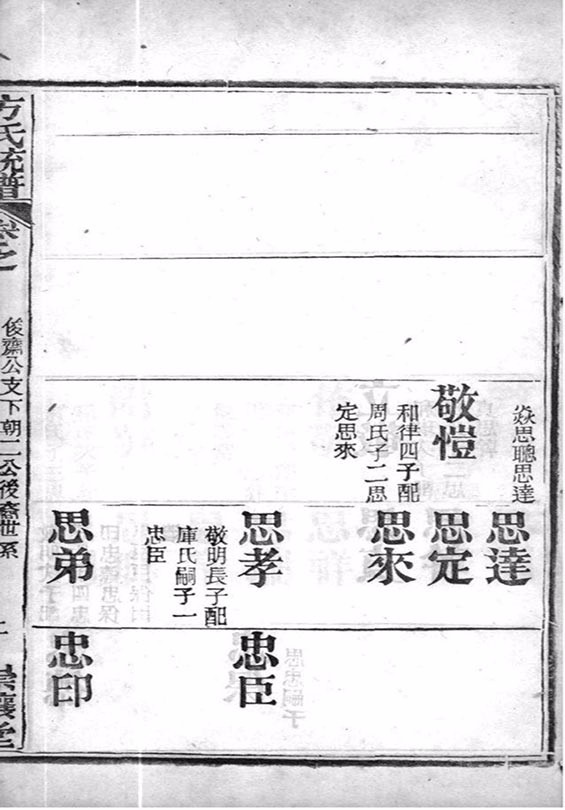 焱思聰思達
敬愷
和律四子配
周氏子二思
定思來
思達
思定
思來
思孝
敬明長子配
庫氏嗣子一
忠臣
思弟
忠臣
忠印
方氏統譜
卷之
俊齋公支下朝二公後裔世系